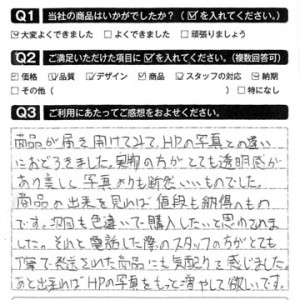 Q1 当社の商品はいかがでしたか?(☑を入れてください。)
☑大変よくできました □よくできました □頑張りましょう
Q2 ご満足いただけた項目に☑を入れてください。(複数回答可)
☑価格 ☑品質 ☑デザイン ☑商品 ☑スタッフの対応 ☑納期
□その他( ) □特になし
Q3 ご利用にあたってご感想をおよせください。
商品が届き開けてみて、HPの写真との違い
におどろきました。実物の方がとても透明感が
あり美しく写真よりも断然いいものでした。
商品の出来を見れば値段も納得のもの
です。次回も色違いで購入したいと思
ました。それと電話した際のスタッフの方がとても
丁寧で発送された商品にも気配りを感じました。
あと出来ればHPの写真をもっと増やして欲しいです。